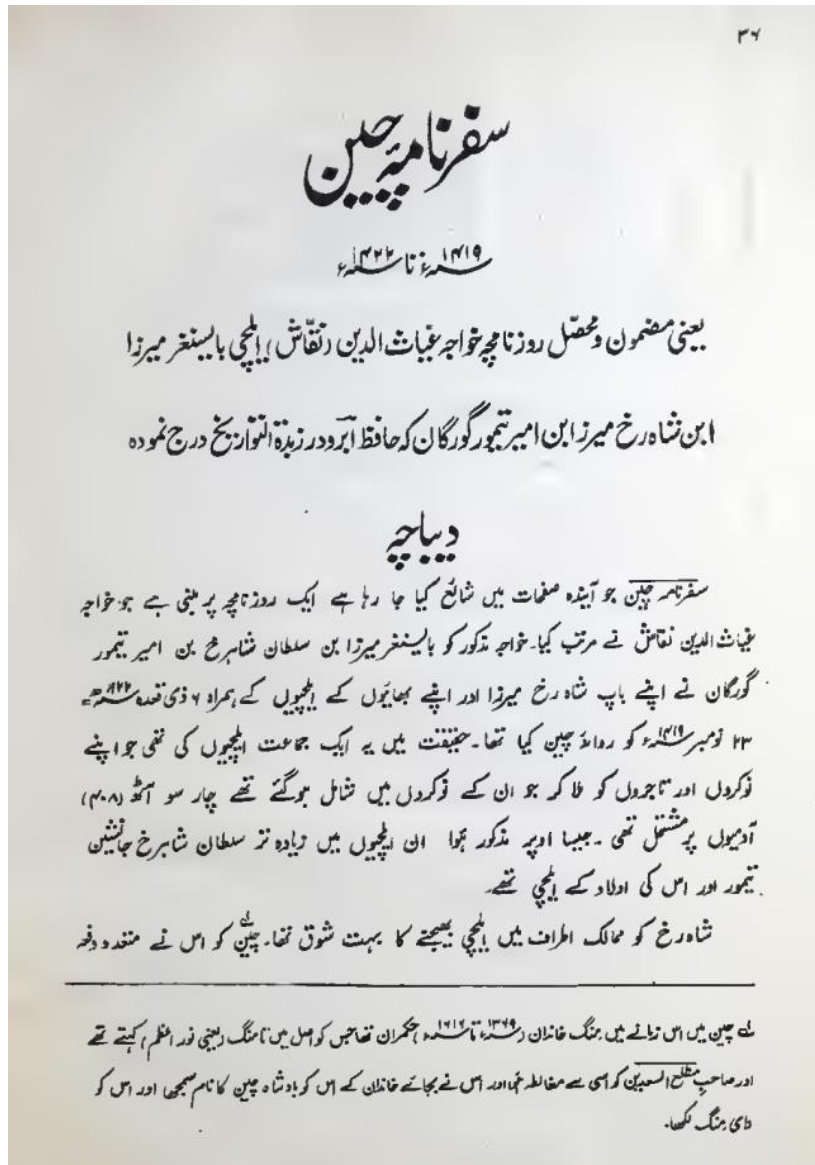 ۳۶
سفرنامۂ چین
۱۴۱۹ء تا ۱۴۲۲ء
یعنی مضمون و محصّل روزنامچہ خواجہ غیاث الدین (نقّاش) ایلچی بایسنغر میرزا
ابن شاہ رخ میرزا ابن امیر تیمور گورگان کہ حافظ ابرو در زبدة التواریخ درج نمودہ
دیباچہ
سفرنامہ چین جو آیندہ صفحات میں شائع کیا جا رہا ہے ایک روزنامچہ پر مبنی ہے جو خواجہ
غیاث الدین نقاش نے مرتب کیا۔ خواجہ مذکور کو بایسنغر میرزا بن سلطان شاہرخ بن امیر تیمور
گورگان نے اپنے باپ شاہ رخ میرزا اور اپنے بھائیوں کے ایلچیوں کے ہمراہ ۶ ذی قعدہ ۸۲۲ھ =
۲۳ نومبر ۱۴۱۹ء کو روانۂ چین کیا تھا۔ حقیقت میں یہ ایک جماعت ایلچیوں کی تھی جو اپنے
نوکروں اور تاجروں کو ملا کر جو ان کے نوکروں میں شامل ہوگئے تھے چار سو آٹھ (۴۰۸)
آدمیوں پر مشتمل تھی۔ جیسا اوپر مذکور ہؤا ان ایلچیوں میں زیادہ تر سلطان شاہرخ جانشین
تیمور اور اس کی اولاد کے ایلچی تھے۔
شاہ رخ کو ممالک اطراف میں ایلچی بھیجنے کا بہت شوق تھا۔ چین کو اس نے متعدد دفعہ
لہ چین میں اس زمانے میں مِنگ خاندان (۱۳۶۹ء تا ۱۶۱۶ء) حکمران تھا جس کو اصل میں تامنگ (یعنی نور اعظم) کہتے تھے
اور صاحبِ مطلع السعدین کو اسی سے مغالطہ ہؤا اور اس نے بجائے خاندان کے اس کو بادشاہ چین کا نام سمجھا اور اس کو
دای مِنگ لکھا۔